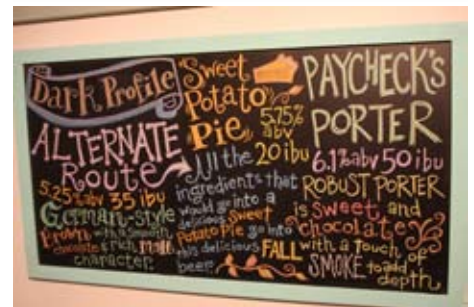 Dark Profile
ALTERNATE
Route
5.25% abv 35 ibu
German-style
brown with a smooth,
chocolate & rich malt
character.
Sweet
Potato
Pie
5.75%
abv
20 ibu
All the
ingredients that
would go into a
delicious Sweet
Potato Pie go into
this delicious
beer
FALL
PAYCHECK'S
PORTER
6.1% abv 50 ibu
ROBUST PORTER
is sweet and
chocolate
with a touch of
SMOKE to add
depth